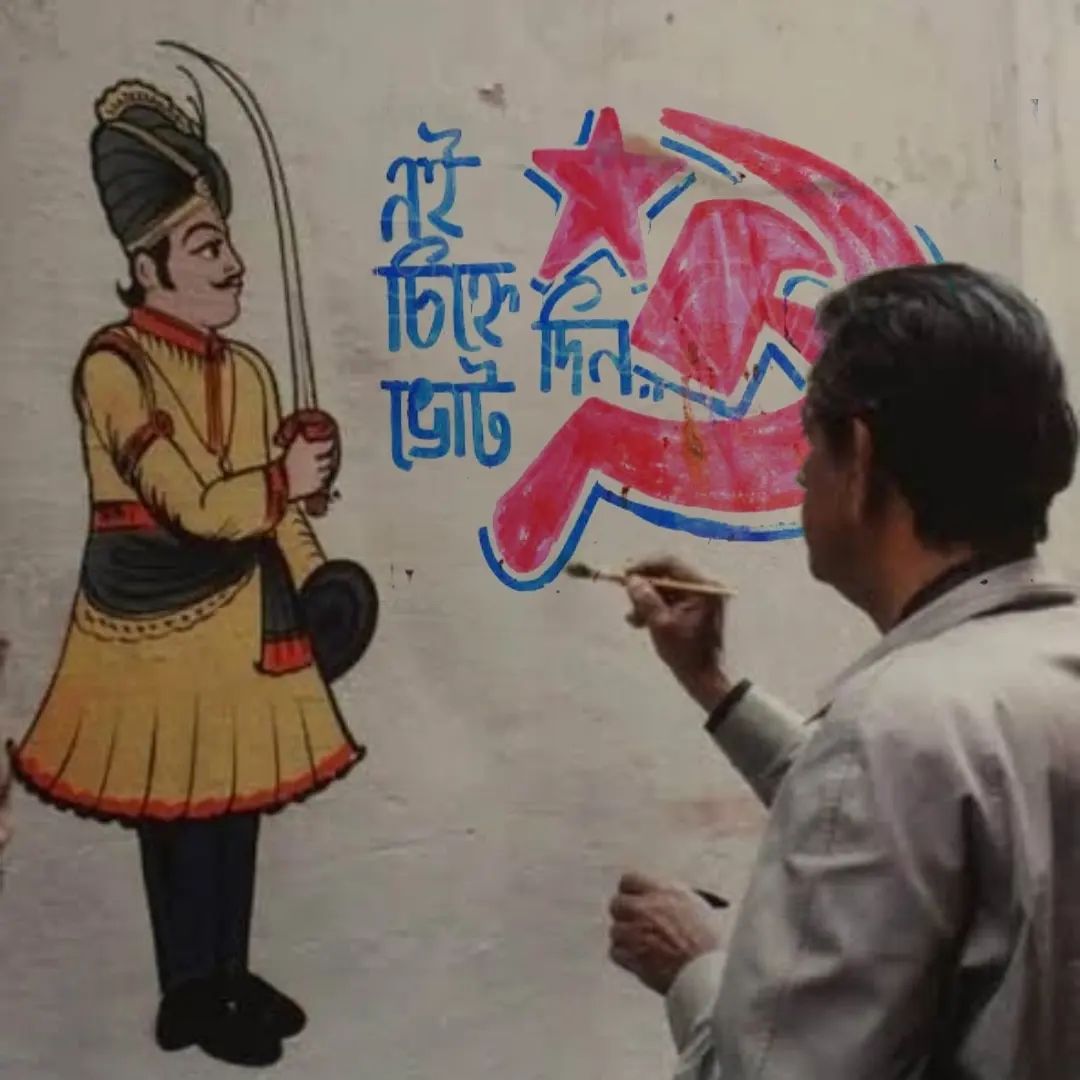 এই
চিহ্নে
ভোট
দিন..